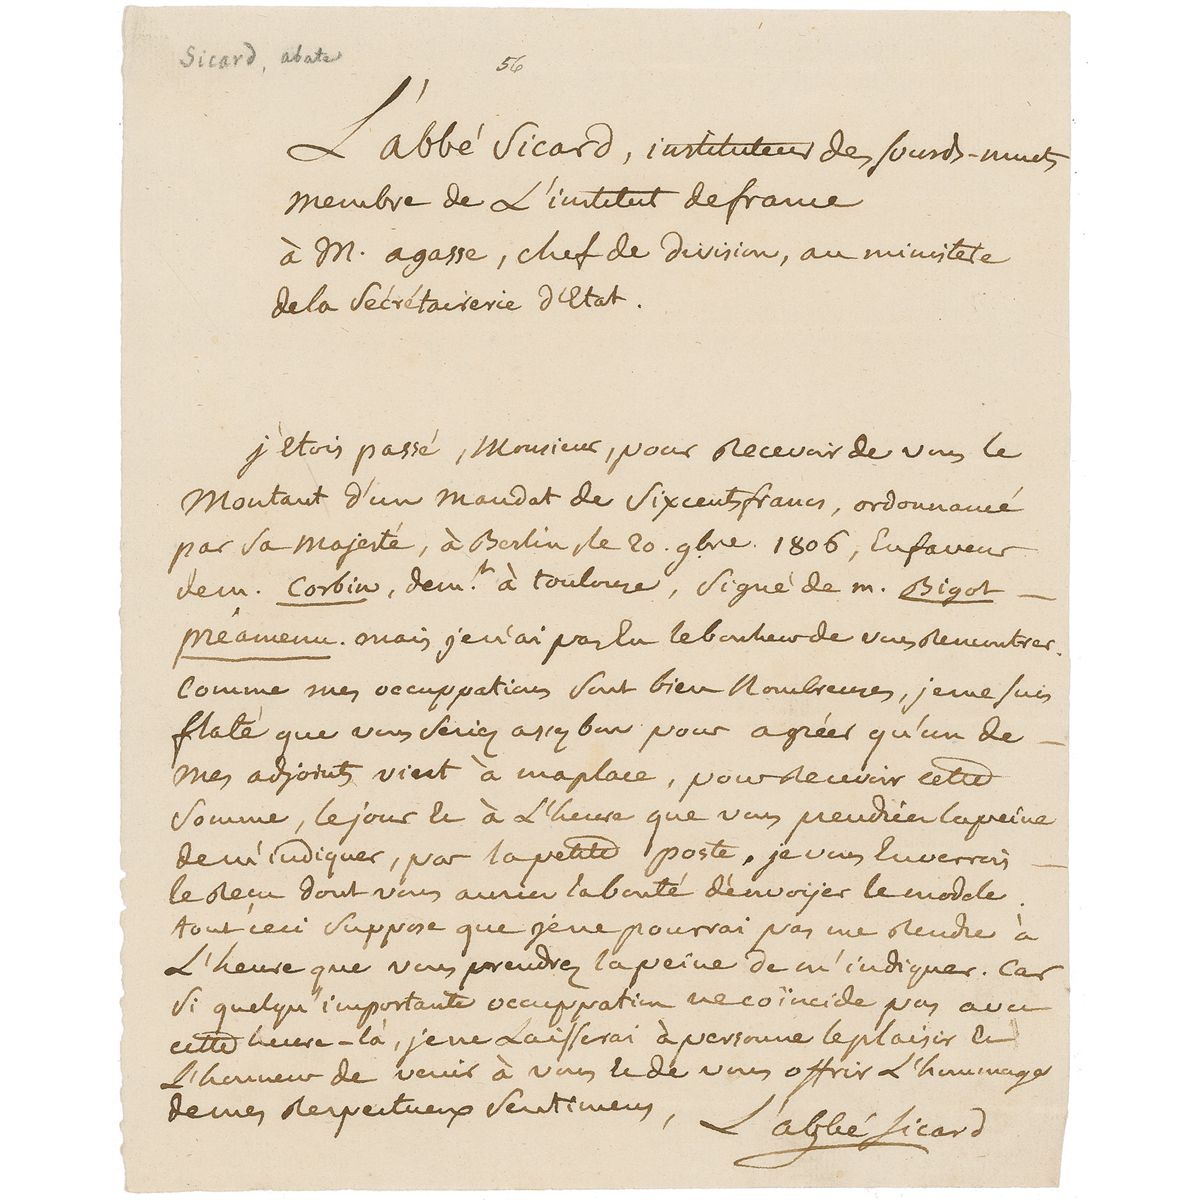 Sicard, abate
56
L'abbé Sicard, instituteur des sourds-muets
membre de L'institut de france
à M. agasse, chef de division, au ministère
de la Sécrétairerie d'Etat.
j'Etois passé, Monsieur, pour recevoir de vous le
Montant d'un mandat de Sixcents francs, ordonnancé
par Sa Majesté, à Berlin, le 20. 9bre. 1806, En faveur
de m. Corbin, dem.t à toulouse, signé de m. Bigot
préameneu. mais je n'ai pas Eu le bonheur de vous rencontrer.
Comme mes occuppations sont bien Nombreuses, je me suis
flaté que vous Seriez assez bon pour agréer qu'un de
mes adjoints vient à ma place, pour recevoir cette
Somme, le jour Et à L'heure que vous prendriez la peine
de m'indiquer, par la petite poste, je vous Enverrois
le Reçu dont vous auriez la bonté d'envoyer le modele.
tout ceci suppose que je ne pourrai pas me rendre à
L'heure que vous prendrez la peine de m'indiquer. Car
Si quelqu'importante occuppation ne coïncide pas avec
cette heure-là, je ne Laisserai à personne le plaisir Et
L'honneur de venir à vous Et de vous offrir L'hommage
de mes Respectueux Sentimens,
L'abbé Sicard